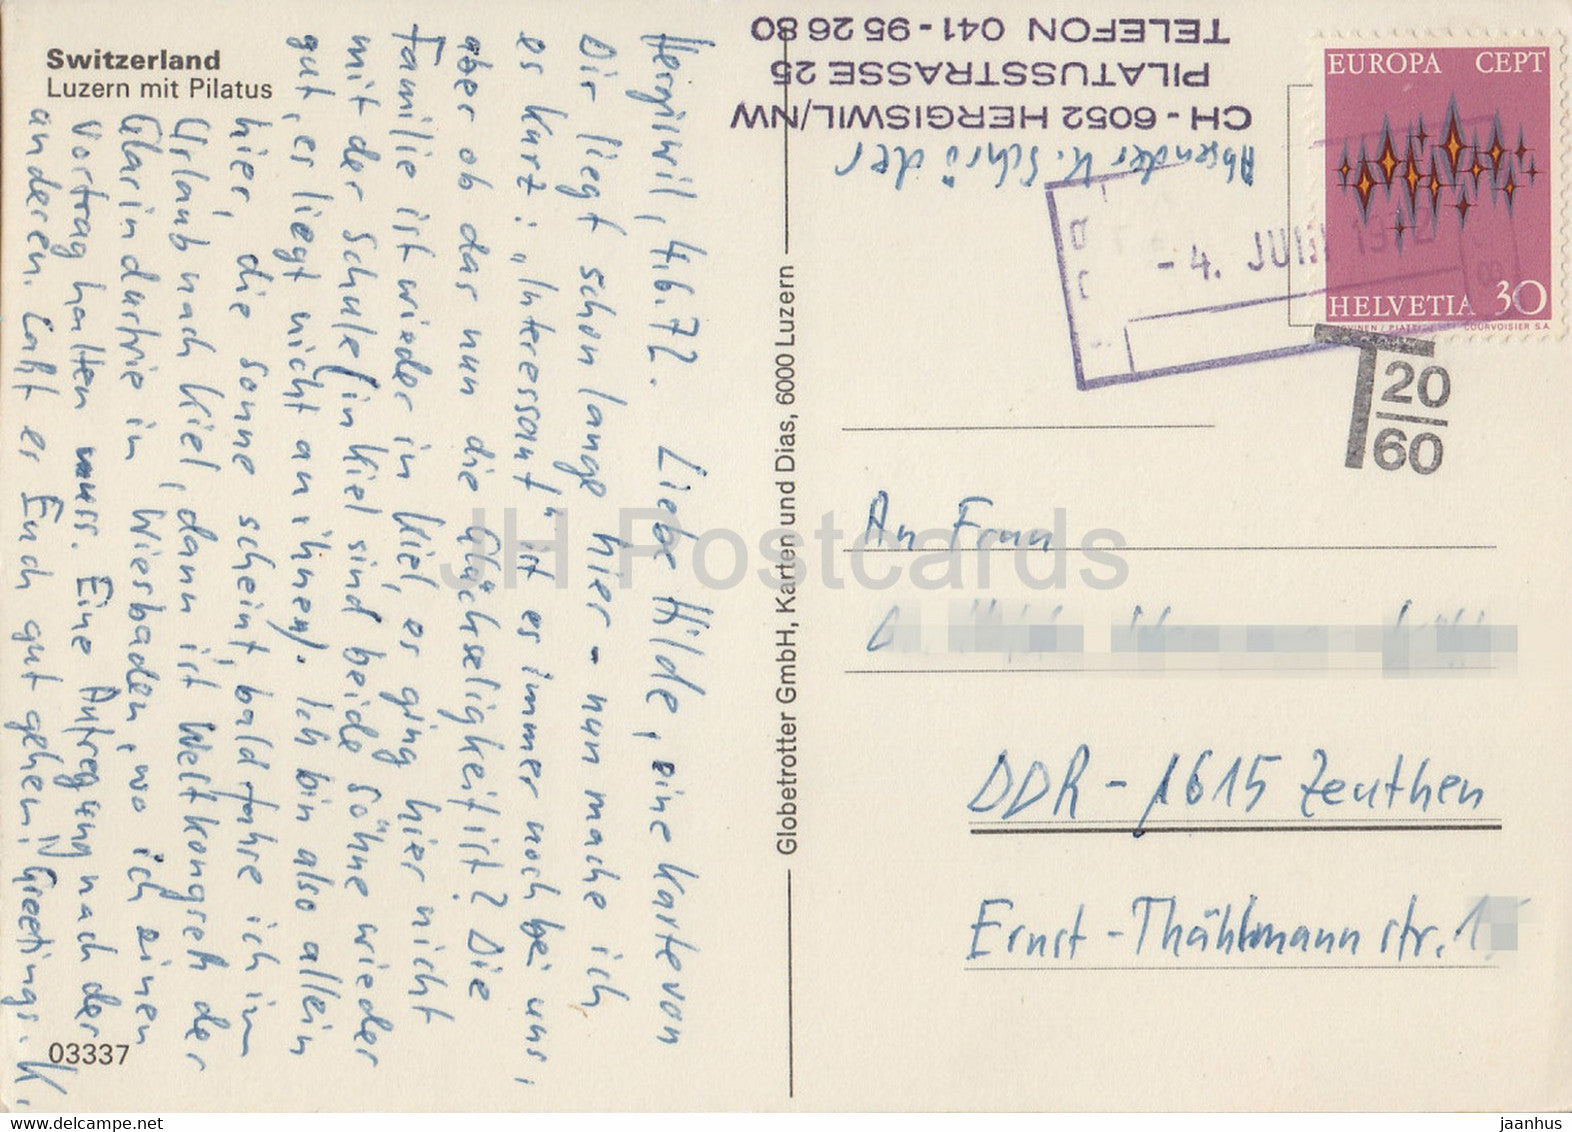 Switzerland
Luzern mit Pilatus
Hergiswil, 4.6.72. Liebe Hilde, eine Karte von
Dir liegt schon lange hier - nun mache ich
es kurz: „Interessant" ist es immer noch bei uns,
aber ob das nun die Glückseligkeit ist? Die
Familie ist wieder in Kiel, es ging hier nicht
mit der Schule (in Kiel sind beide Söhne wieder
gut, es liegt nicht an ihnen). Ich bin also allein
hier, die Sonne scheint, bald fahre ich im
Urlaub nach Kiel, dann ist Weltkongress der
Glasindustrie in Wiesbaden, wo ich einen
Vortrag halten muss. Eine Aufregung nach der
anderen. Laßt es Euch gut gehen! Greetings. K.
03337
Globetrotter GmbH, Karten und Dias, 6000 Luzern
Absender K. Schröder
CH - 6052 HERGISWIL/NW
PILATUSSTRASSE 25
TELEFON 041 - 95 26 80
EUROPA CEPT
HELVETIA 30
COURVOISIER S.A.
- 4. JUNI
T 20
60
An Frau
DDR - 1615 Zeuthen
Ernst - Thählmannstr. 1
JH Postcards
www.delcampe.net
jaanhus